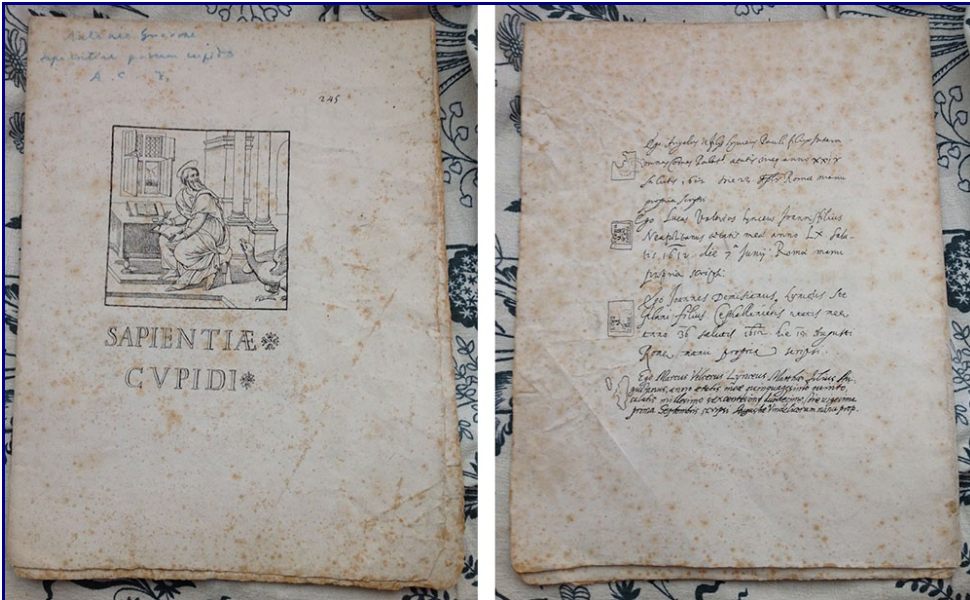 A. C.
245
SAPIENTIÆ
CVPIDI
Ego Angelus Lynceus Pauli filius
aetatis meae anno XXIX
Salutis 1612 Romae manu
propria scripsi
Ego Lucas Valerius Lynceus Joannis filius
Neapolitanus aetatis meae anno LX Salu-
tis 1612 die 7ª Junij Romae manu
propria scripsi.
Ego Joannes Demisianus Lynceus Ste
phani filius Cephalleniensis aetatis meae
anno 36 salutis 1612 die Augusti
Romae manu propria scripsi.
Ego Marcus Velserus Lynceus Matthaei filius Au-
gustanus, anno aetatis meae quinquagesimo quinto,
salutis millesimo sexcentesimo duodecimo, die vigesima
prima Septembris scripsi Augustae Vindelicorum manu prop.